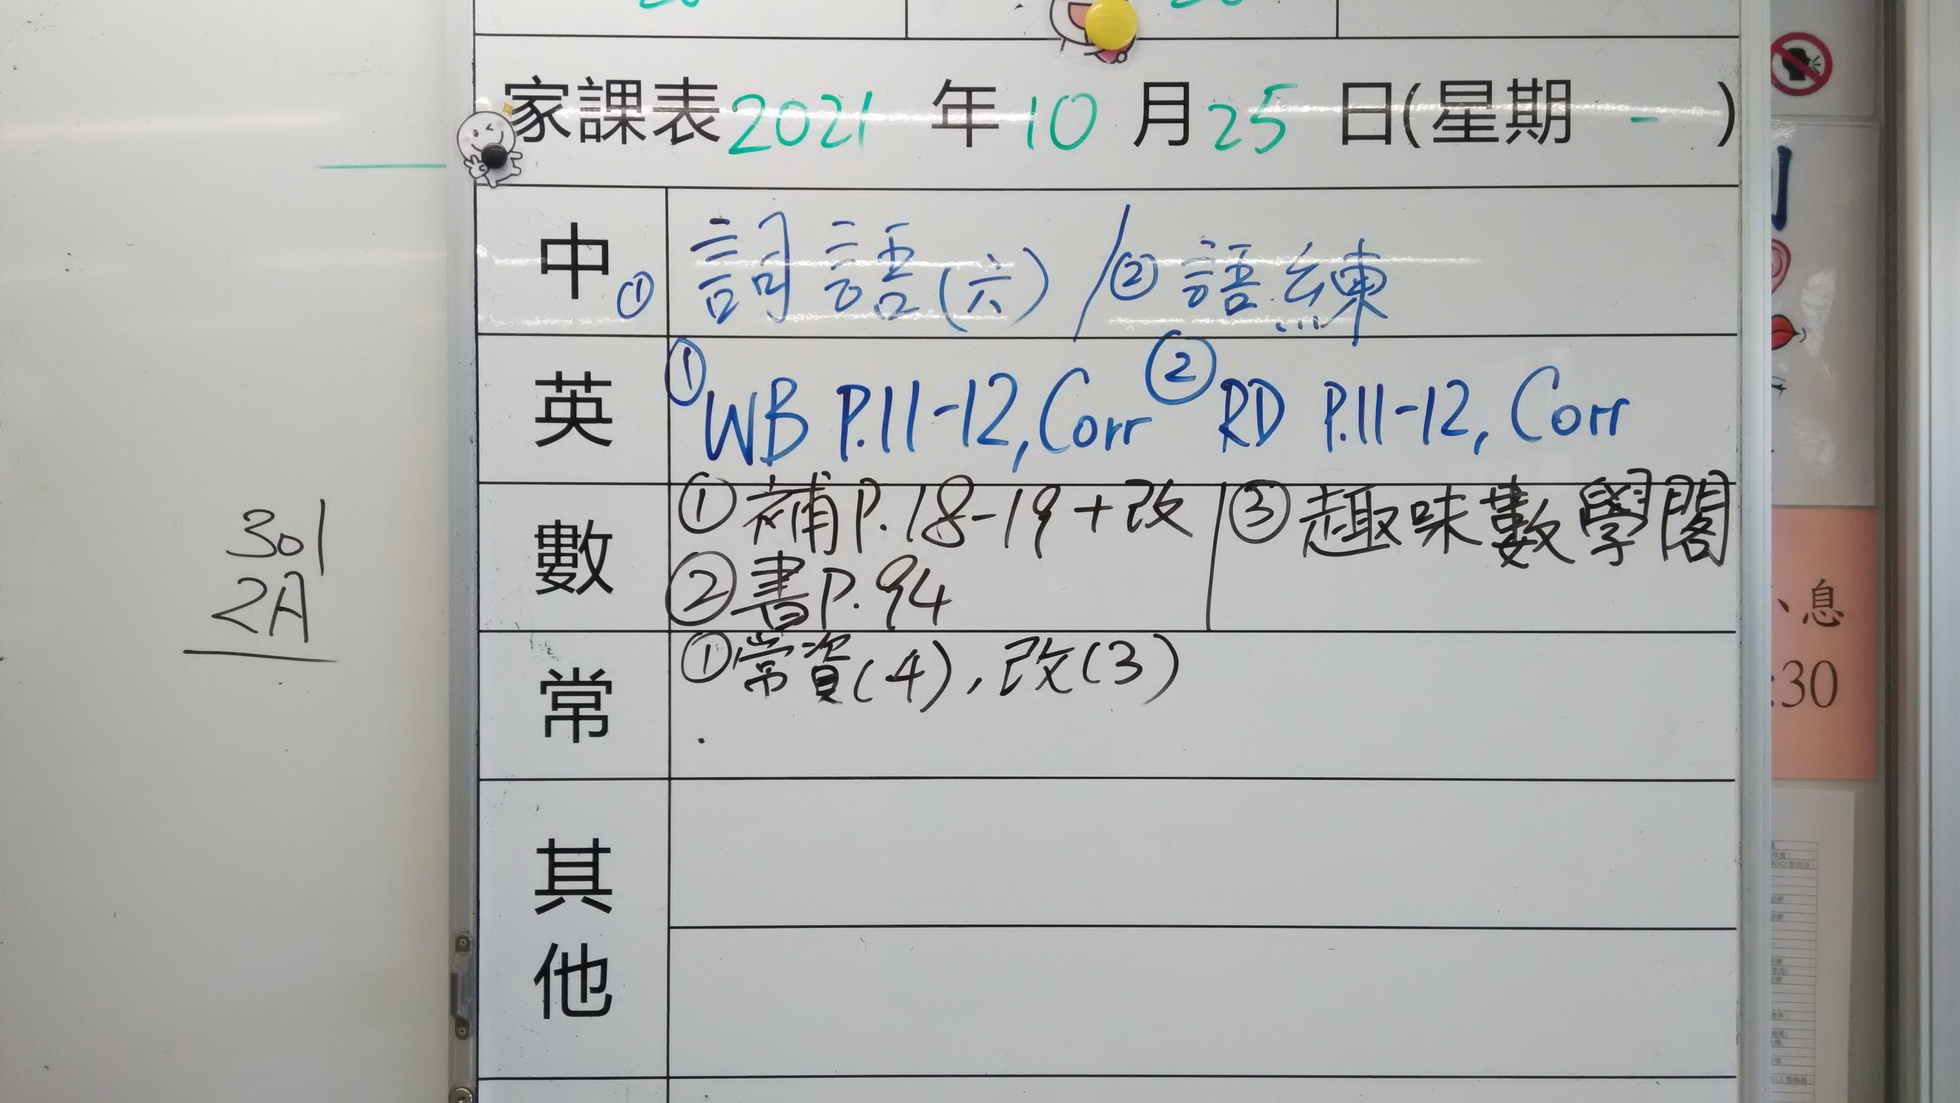 家課表2021年10月25日(星期一)
中 ①詞語(六)/②語練
英 ①WB P.11-12, Corr ②RD P.11-12, Corr
數 ①補P.18-19+改 ③趣味數學閣
②書P.94
常 ①常資(4), 改(3)
其他
301
2A
息
:30